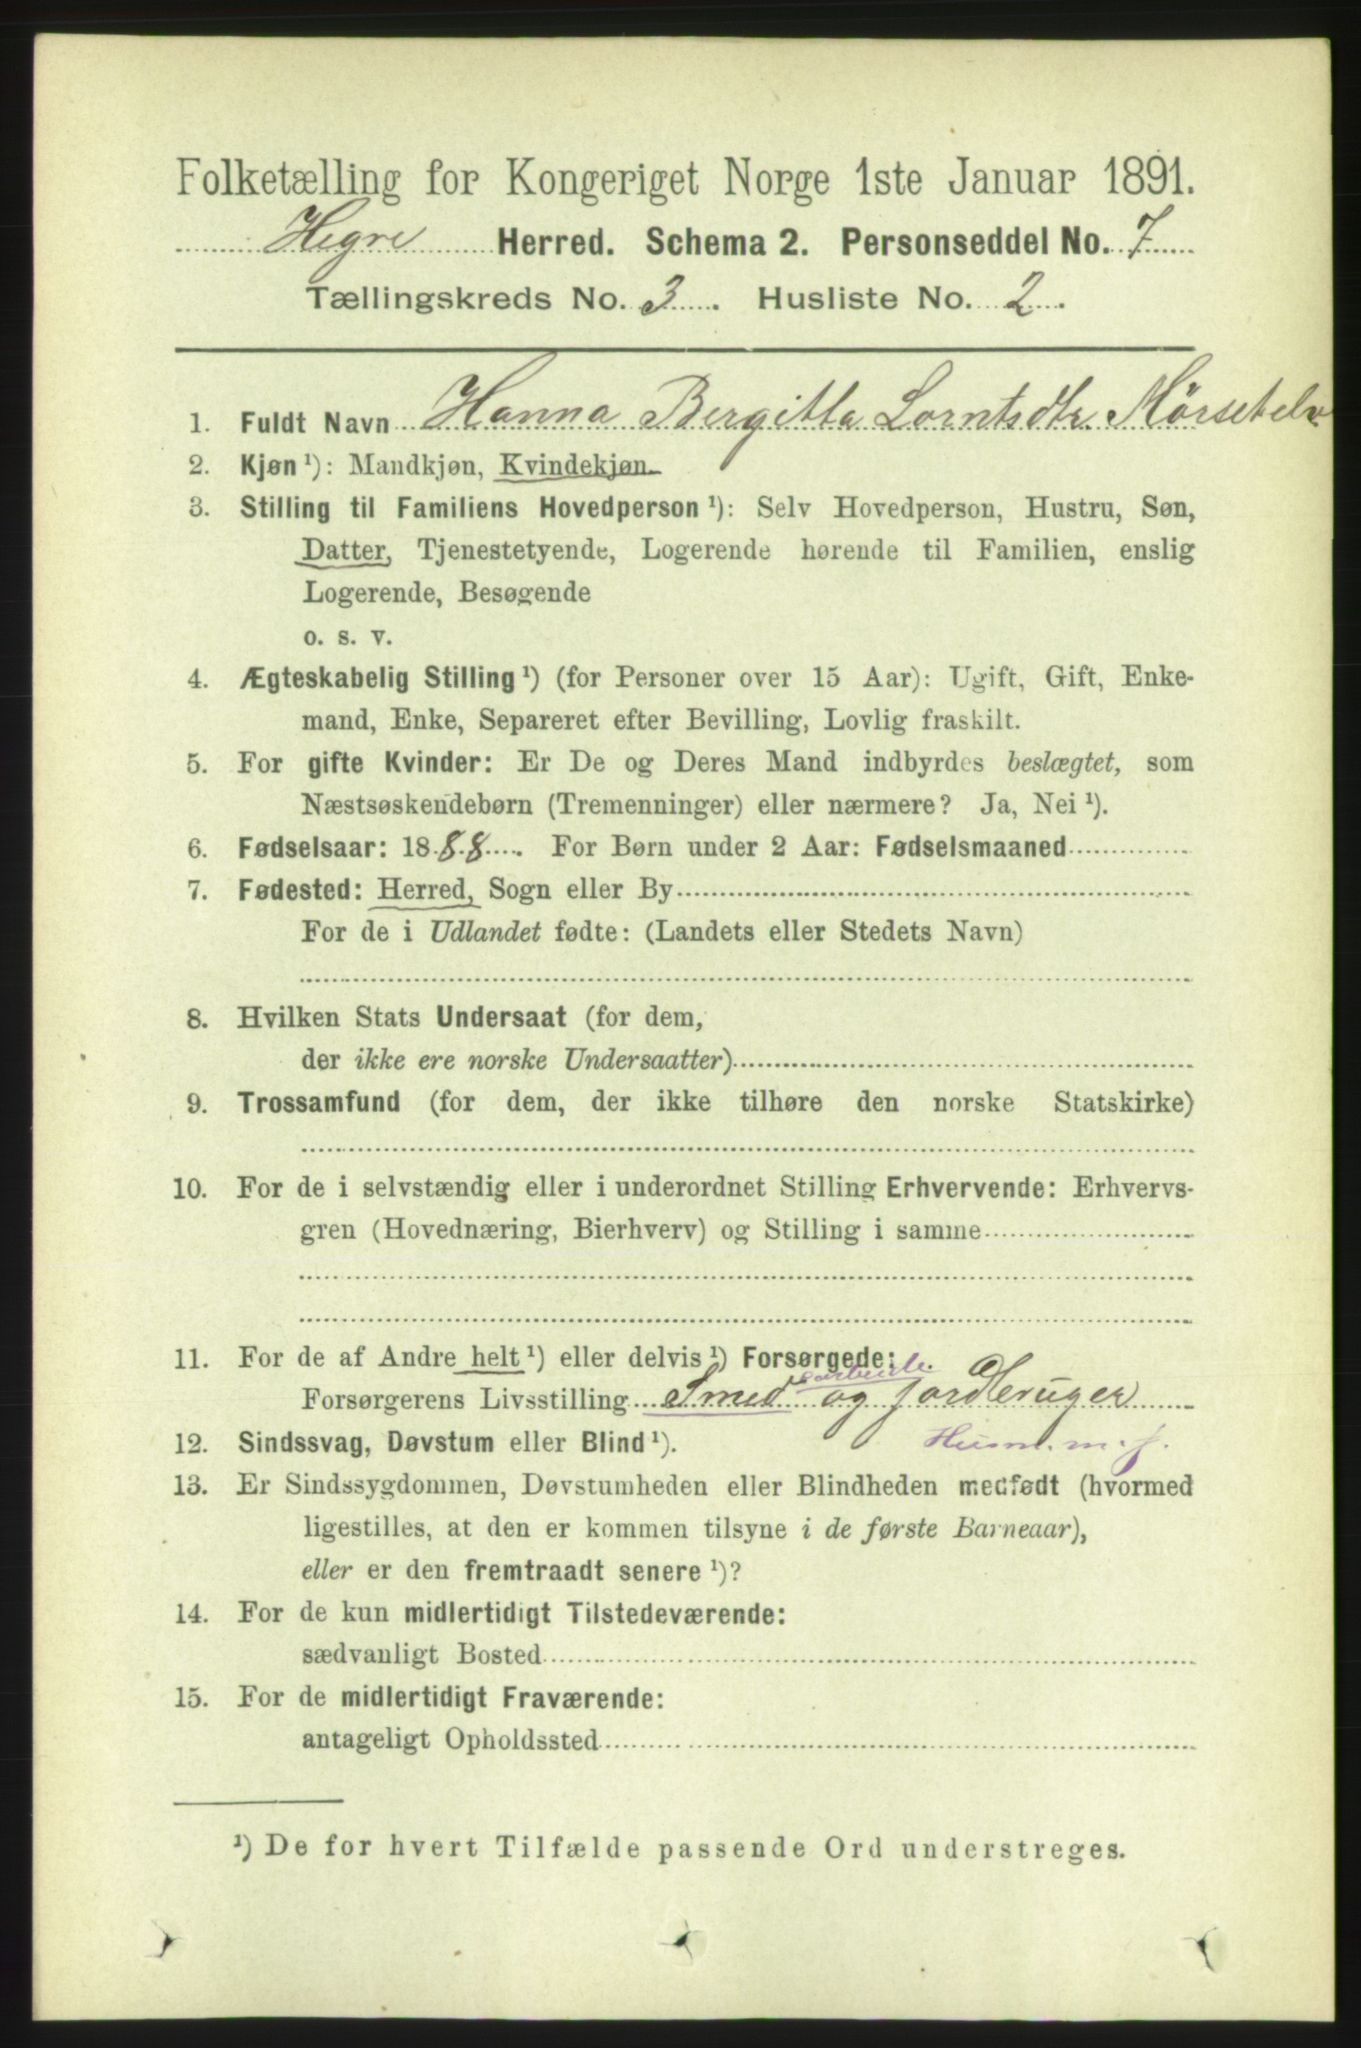 Folketælling for Kongeriget Norge 1ste Januar 1891.
Hegre Herred. Schema 2. Personseddel No. 7
Tællingskreds No. 3. Husliste No. 2.
1. Fuldt Navn Hanna Bergitta Lorntsdtr. Mörsetelv
2. Kjøn ¹): Mandkjøn, Kvindekjøn.
3. Stilling til Familiens Hovedperson ¹): Selv Hovedperson, Hustru, Søn,
Datter, Tjenestetyende, Logerende hørende til Familien, enslig
Logerende, Besøgende
o. s. v.
4. Ægteskabelig Stilling ¹) (for Personer over 15 Aar): Ugift, Gift, Enke-
mand, Enke, Separeret efter Bevilling, Lovlig fraskilt.
5. For gifte Kvinder: Er De og Deres Mand indbyrdes beslægtet, som
Næstsøskendebørn (Tremenninger) eller nærmere? Ja, Nei ¹).
6. Fødselsaar: 1888. For Børn under 2 Aar: Fødselsmaaned
7. Fødested: Herred, Sogn eller By
For de i Udlandet fødte: (Landets eller Stedets Navn)
8. Hvilken Stats Undersaat (for dem,
der ikke ere norske Undersaatter)
9. Trossamfund (for dem, der ikke tilhøre den norske Statskirke)
10. For de i selvstændig eller i underordnet Stilling Erhvervende: Erhvervs-
gren (Hovednæring, Bierhverv) og Stilling i samme
11. For de af Andre helt ¹) eller delvis ¹) Forsørgede:
Forsørgerens Livsstilling Smed og jordbruger
12. Sindssvag, Døvstum eller Blind ¹). Husm. m. j.
13. Er Sindssygdommen, Døvstumheden eller Blindheden medfødt (hvormed
ligestilles, at den er kommen tilsyne i de første Barneaar),
eller er den fremtraadt senere ¹)?
14. For de kun midlertidigt Tilstedeværende:
sædvanligt Bosted
15. For de midlertidigt Fraværende:
antageligt Opholdssted
¹) De for hvert Tilfælde passende Ord understreges.